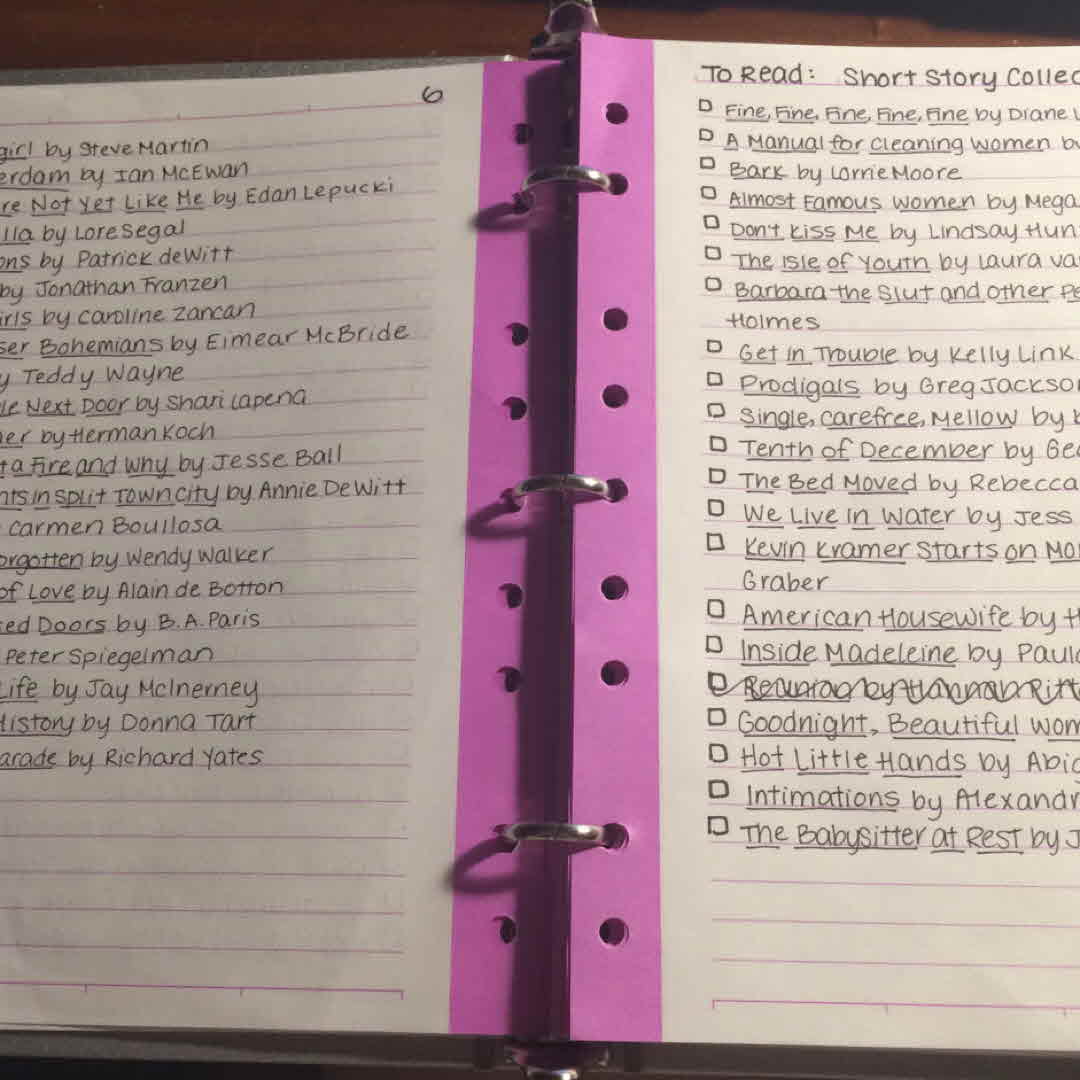 6
girl by Steve Martin
erdam by Ian McEwan
re Not Yet Like Me by Edan Lepucki
lla by Lore Segal
ons by Patrick deWitt
by Jonathan Franzen
irls by Caroline Zancan
ser Bohemians by Eimear McBride
y Teddy Wayne
le Next Door by Shari Lapena
er by Herman Koch
t a Fire and Why by Jesse Ball
nts in Split Town City by Annie DeWitt
Carmen Boullosa
orgotten by Wendy Walker
of Love by Alain de Botton
sed Doors by B.A. Paris
Peter Spiegelman
Life by Jay McInerney
History by Donna Tart
arade by Richard Yates
To Read: Short Story Collec
Fine, Fine, Fine, Fine, Fine by Diane
A Manual for Cleaning Women b
Bark by Lorrie Moore
Almost Famous Women by Mega
Don't Kiss Me by Lindsay Hun
The Isle of Youth by Laura va
Barbara the Slut and Other Pe
Holmes
Get in Trouble by Kelly Link
Prodigals by Greg Jackson
Single, Carefree, Mellow by
Tenth of December by Geo
The Bed Moved by Rebecca
We Live in Water by Jess
Kevin Kramer Starts on Mon
Graber
American Housewife by H
Inside Madeleine by Paula
Reunion by Hannah Pitt
Goodnight, Beautiful Wom
Hot Little Hands by Abig
Intimations by Alexandr
The Babysitter at Rest by J